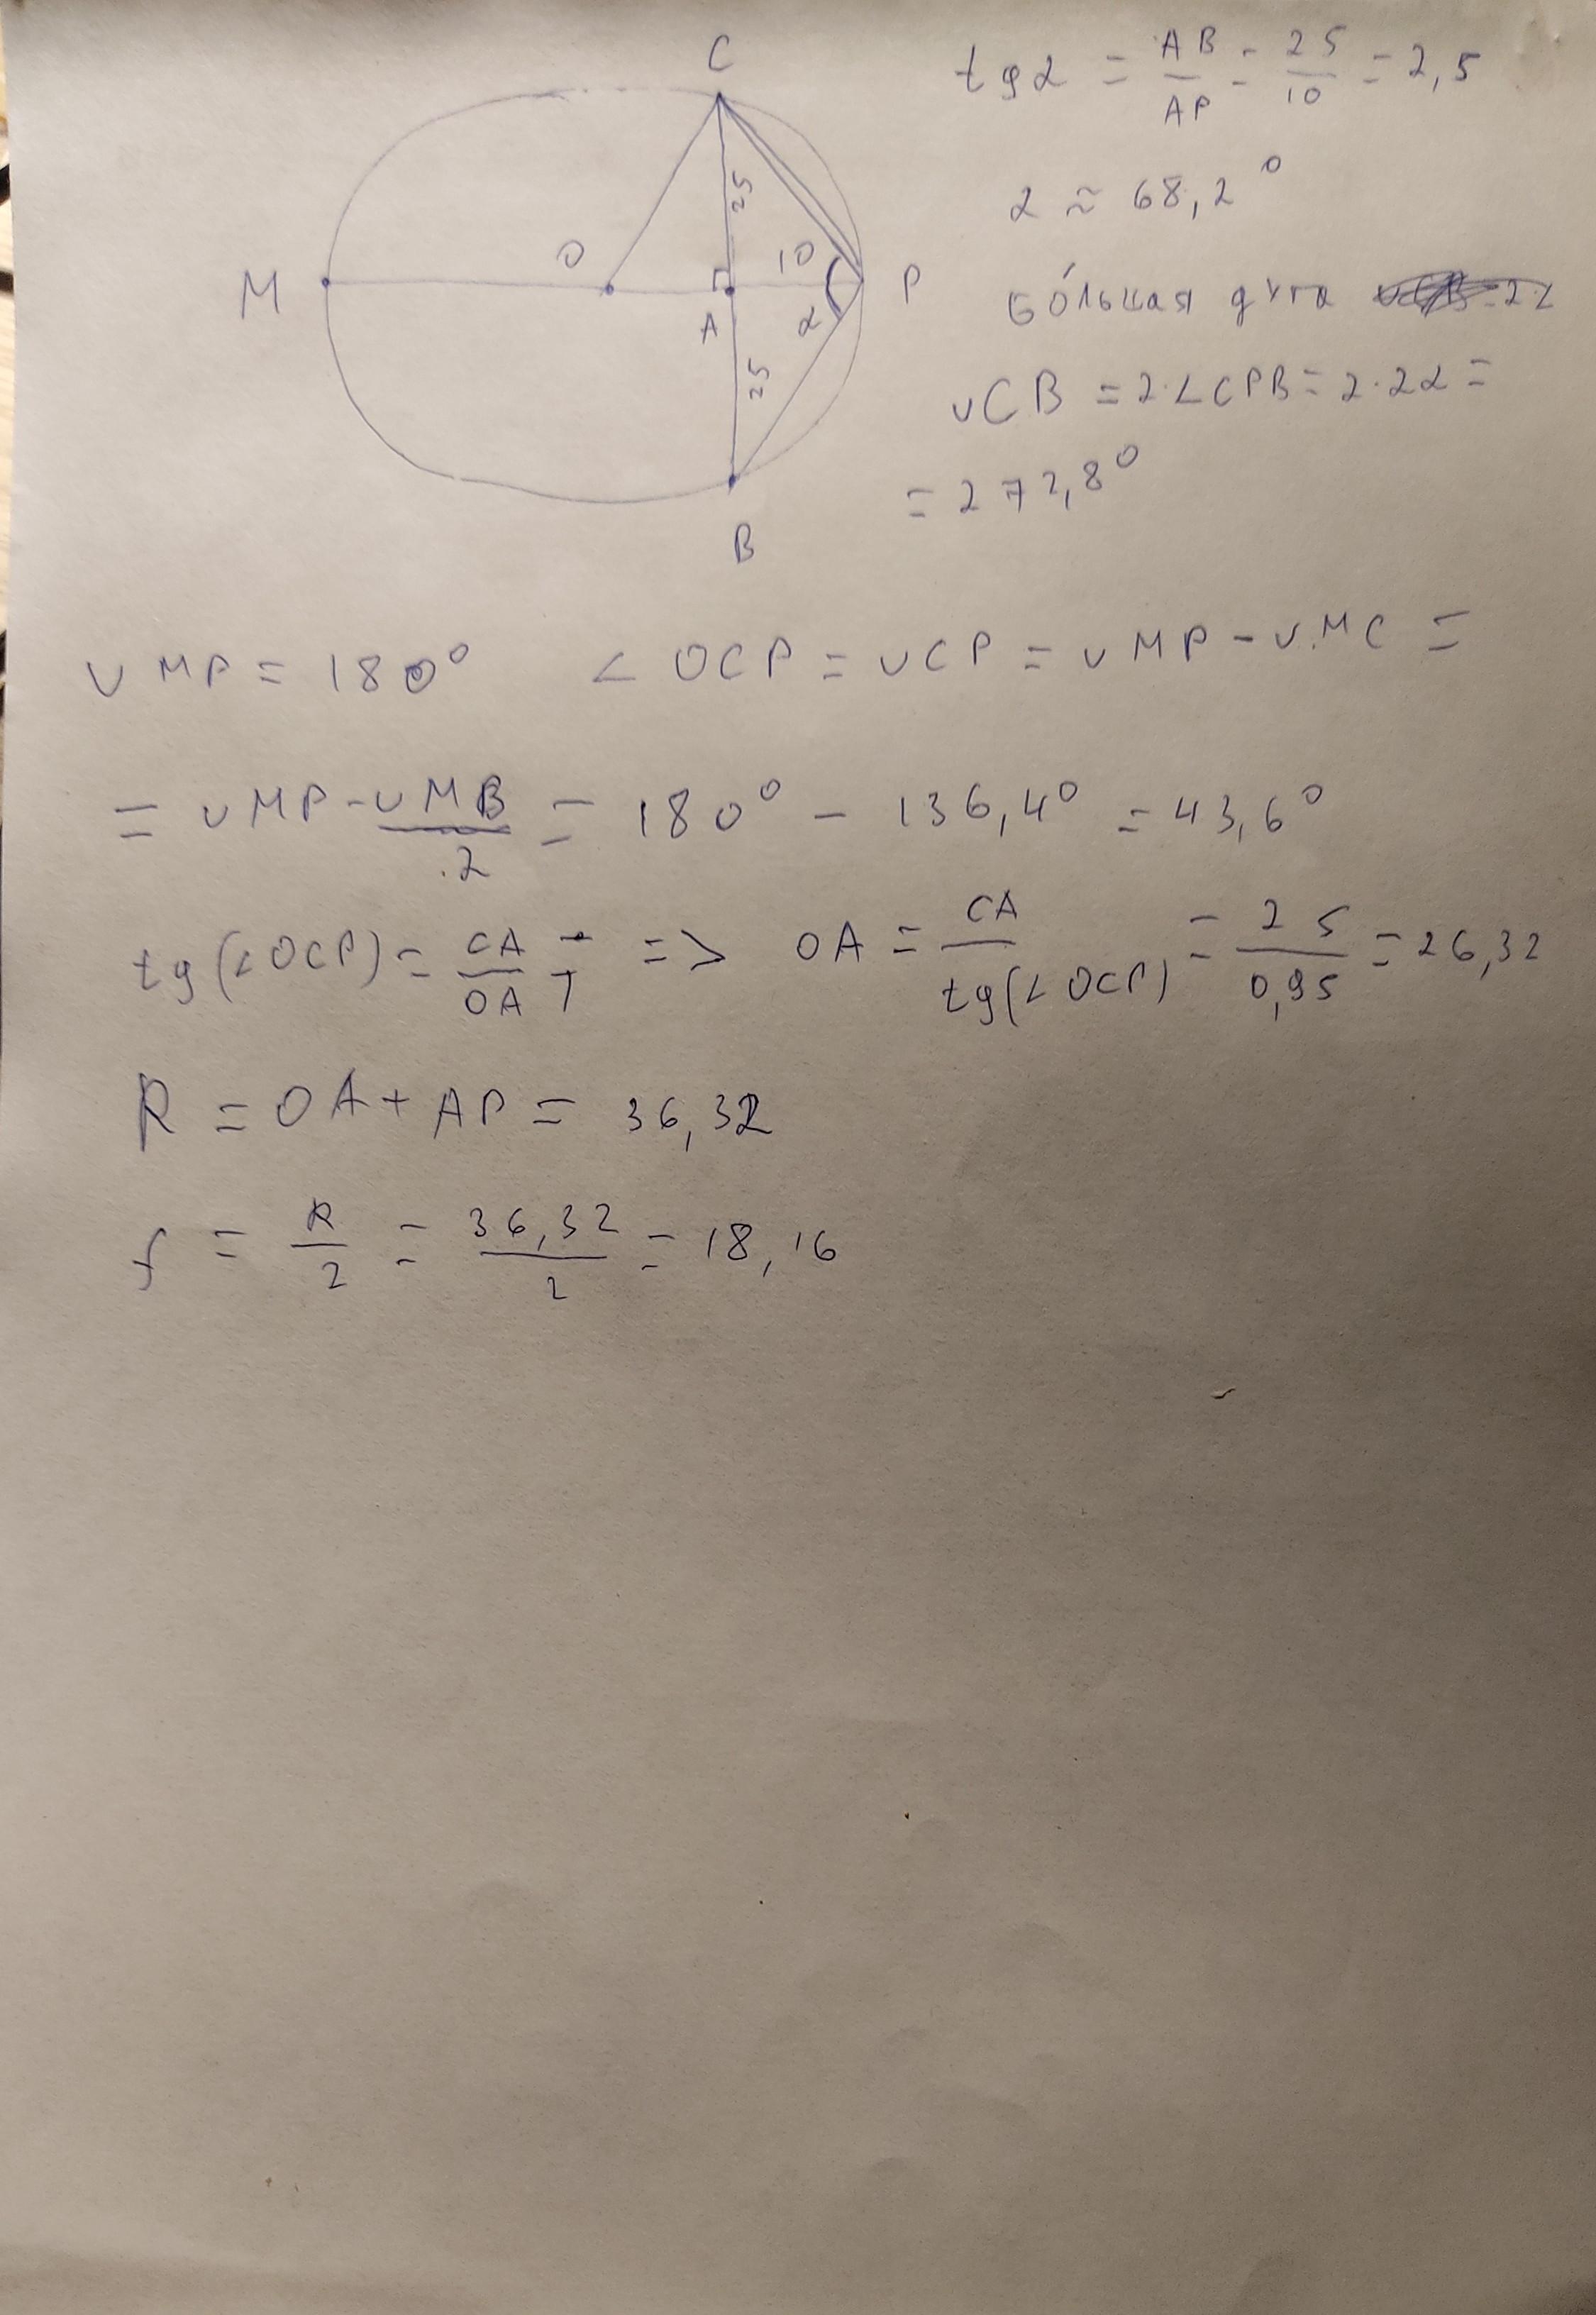 C
25
O
10
M
P
A
α
25
B
tgα = AB/AP = 25/10 = 2,5
α ≈ 68,2°
бо́льшая дуга
∪CB = 2·∠CPB = 2·2α =
= 272,8°
∪MP = 180° ∠OCP = ∪CP = ∪MP - ∪MC =
= ∪MP - ∪MB/2 = 180° - 136,4° = 43,6°
tg(∠OCP) = CA/OA => OA = CA/tg(∠OCP) = 25/0,95 = 26,32
R = OA + AP = 36,32
f = R/2 = 36,32/2 = 18,16